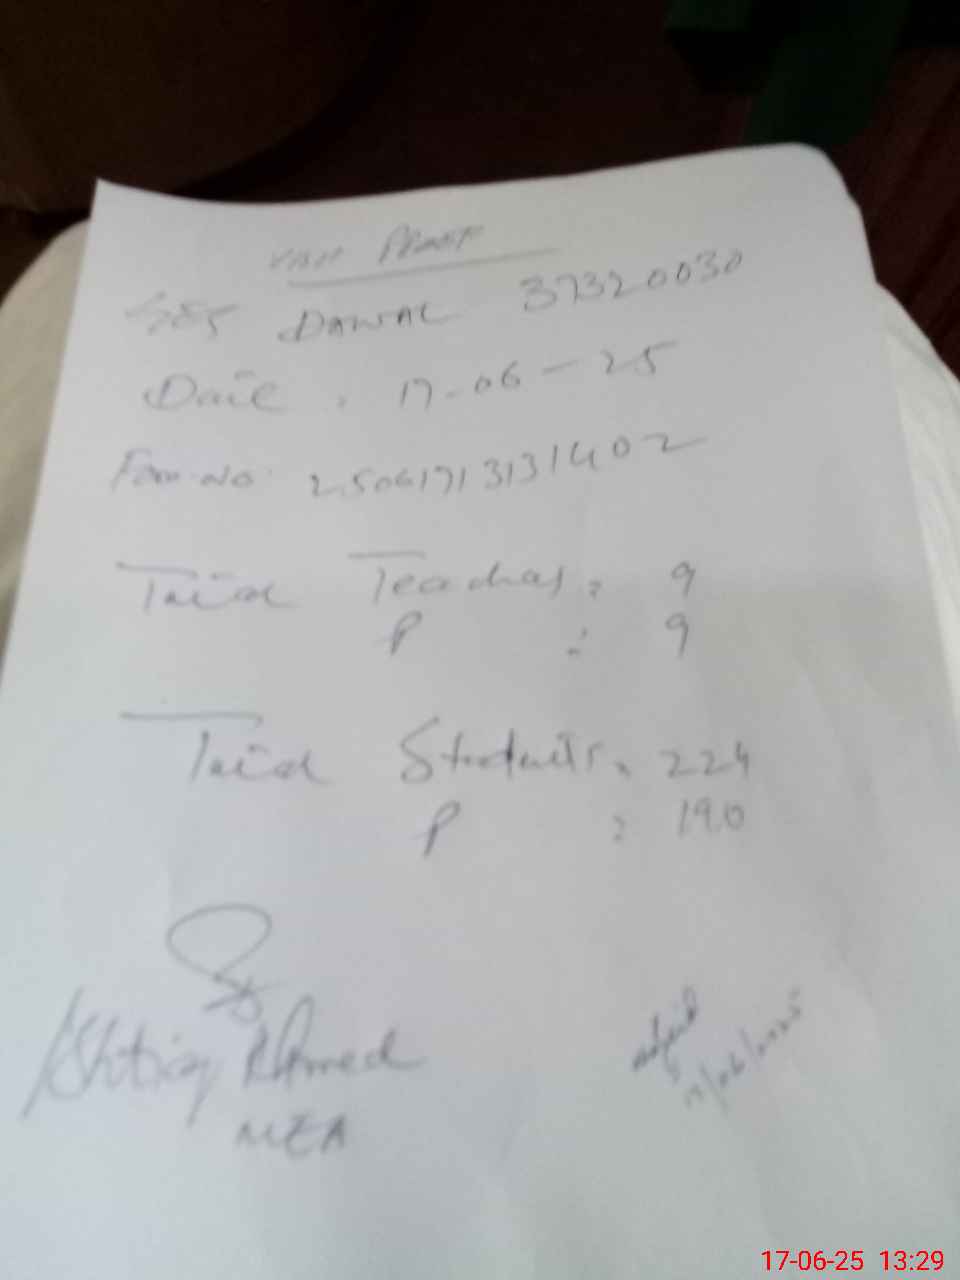 Visit Proof
GES DAWAL 37320030
Date : 17-06-25
Form No: 25061713131402
Total Teachers : 9
P : 9
Total Students : 224
P : 190
Ishtiaq Ahmed
MEA
17/06/2025
17-06-25 13:29